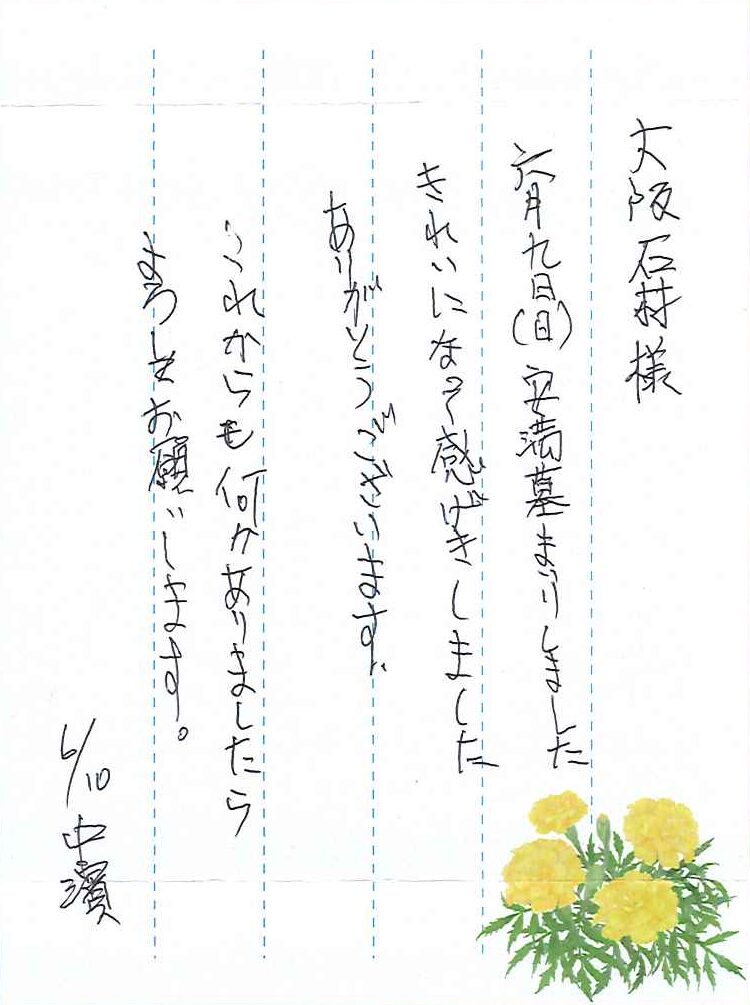 大阪石材様
六月九日(日)安満墓まいりしました
きれいになって感げきしました
ありがとうございます。
これからも何かありましたら
よろしくお願いします。
6/10 中濱